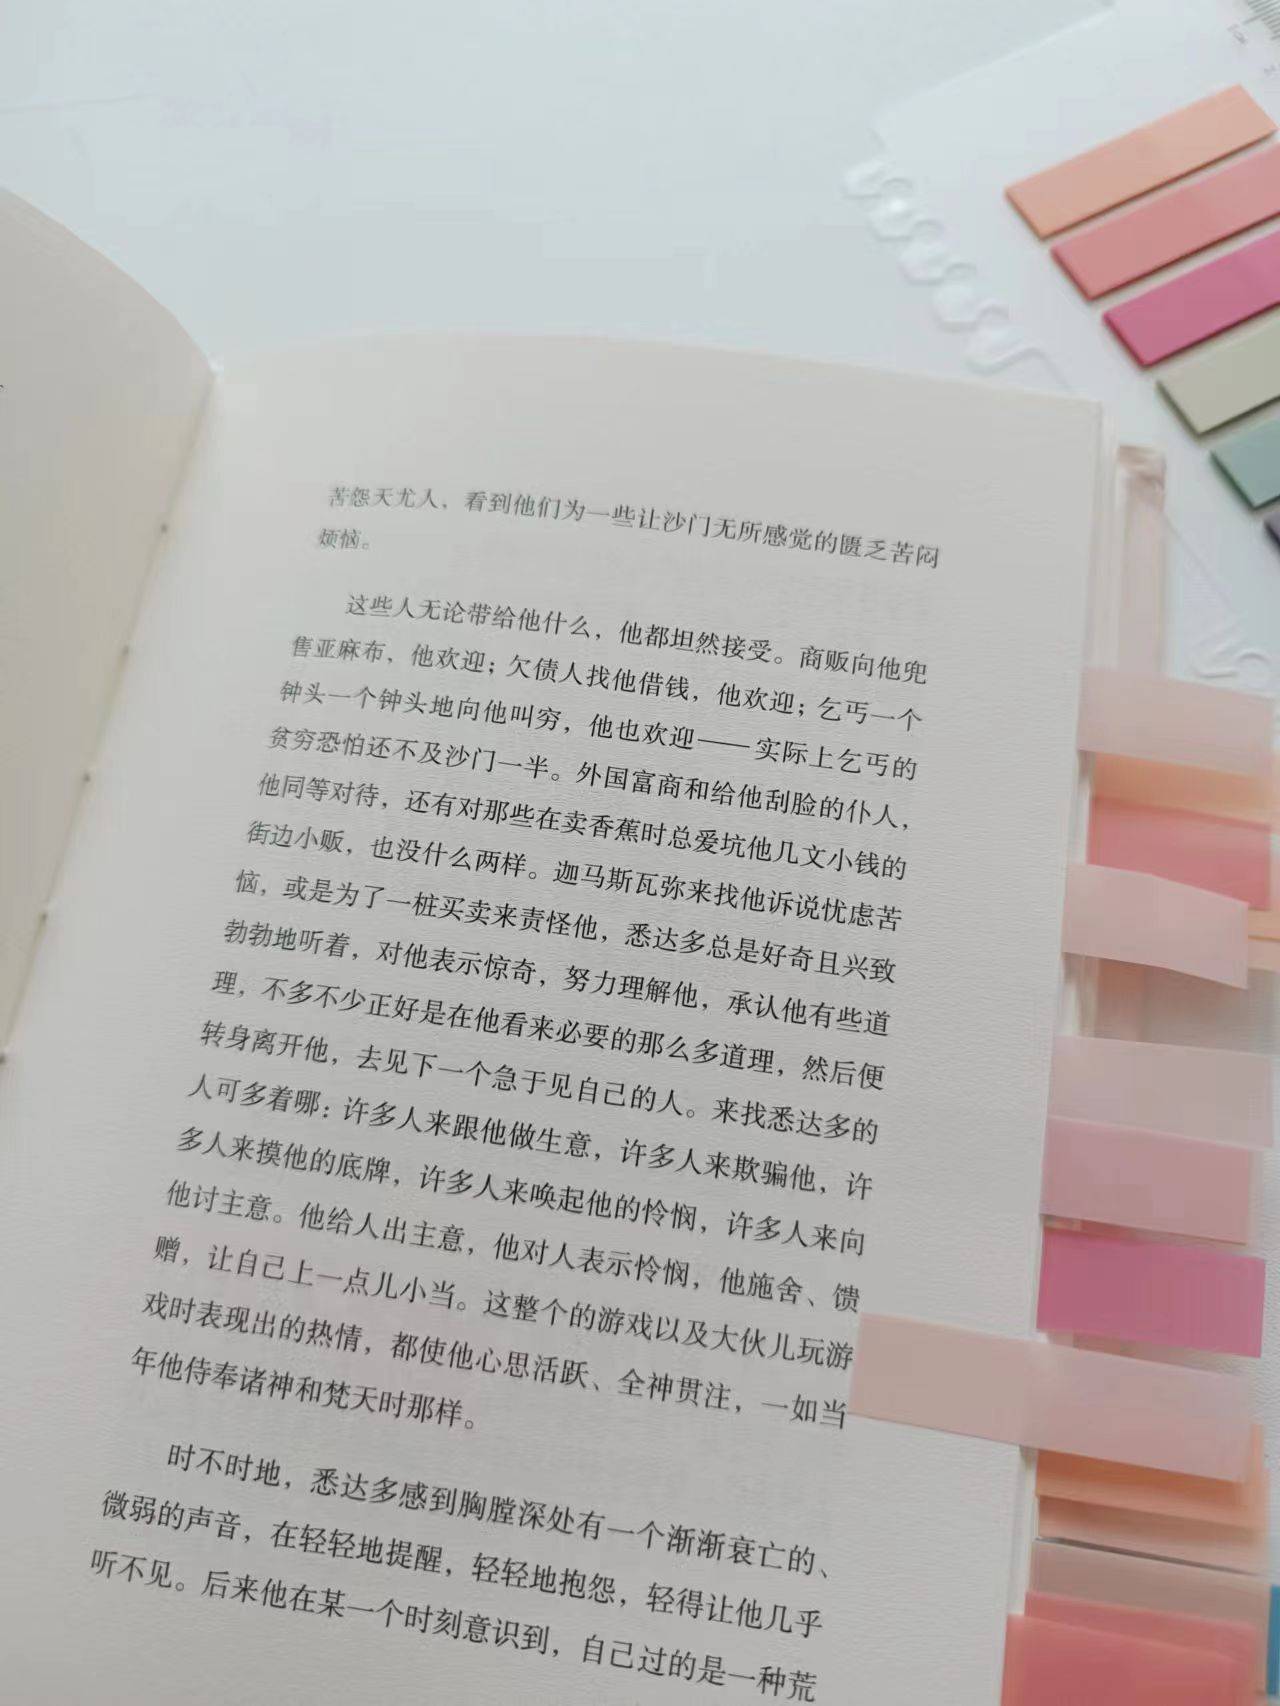 苦怨天尤人，看到他们为一些让沙门无所感觉的匮乏苦闷
烦恼。
这些人无论带给他什么，他都坦然接受。商贩向他兜
售亚麻布，他欢迎；欠债人找他借钱，他欢迎；乞丐一个
钟头一个钟头地向他叫穷，他也欢迎——实际上乞丐的
贫穷恐怕还不及沙门一半。外国富商和给他刮脸的仆人，
他同等对待，还有对那些在卖香蕉时总爱坑他几文小钱的
街边小贩，也没什么两样。迦马斯瓦弥来找他诉说忧虑苦
恼，或是为了一桩买卖来责怪他，悉达多总是好奇且兴致
勃勃地听着，对他表示惊奇，努力理解他，承认他有些道
理，不多不少正好是在他看来必要的那么多道理，然后便
转身离开他，去见下一个急于见自己的人。来找悉达多的
人可多着哪：许多人来跟他做生意，许多人来欺骗他，许
多人来摸他的底牌，许多人来唤起他的怜悯，许多人来向
他讨主意。他给人出主意，他对人表示怜悯，他施舍、馈
赠，让自己上一点儿小当。这整个的游戏以及大伙儿玩游
戏时表现出的热情，都使他心思活跃、全神贯注，一如当
年他侍奉诸神和梵天时那样。
时不时地，悉达多感到胸膛深处有一个渐渐衰亡的、
微弱的声音，在轻轻地提醒，轻轻地抱怨，轻得让他几乎
听不见。后来他在某一个时刻意识到，自己过的是一种荒